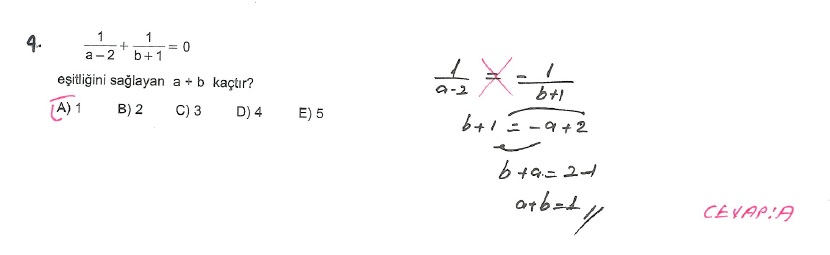 4. 1/(a-2) + 1/(b+1) = 0
eşitliğini sağlayan a + b kaçtır?
A) 1 B) 2 C) 3 D) 4 E) 5
1/(a-2) = -1/(b+1)
b+1 = -a+2
b+a = 2-1
a+b=1//
CEVAP:A